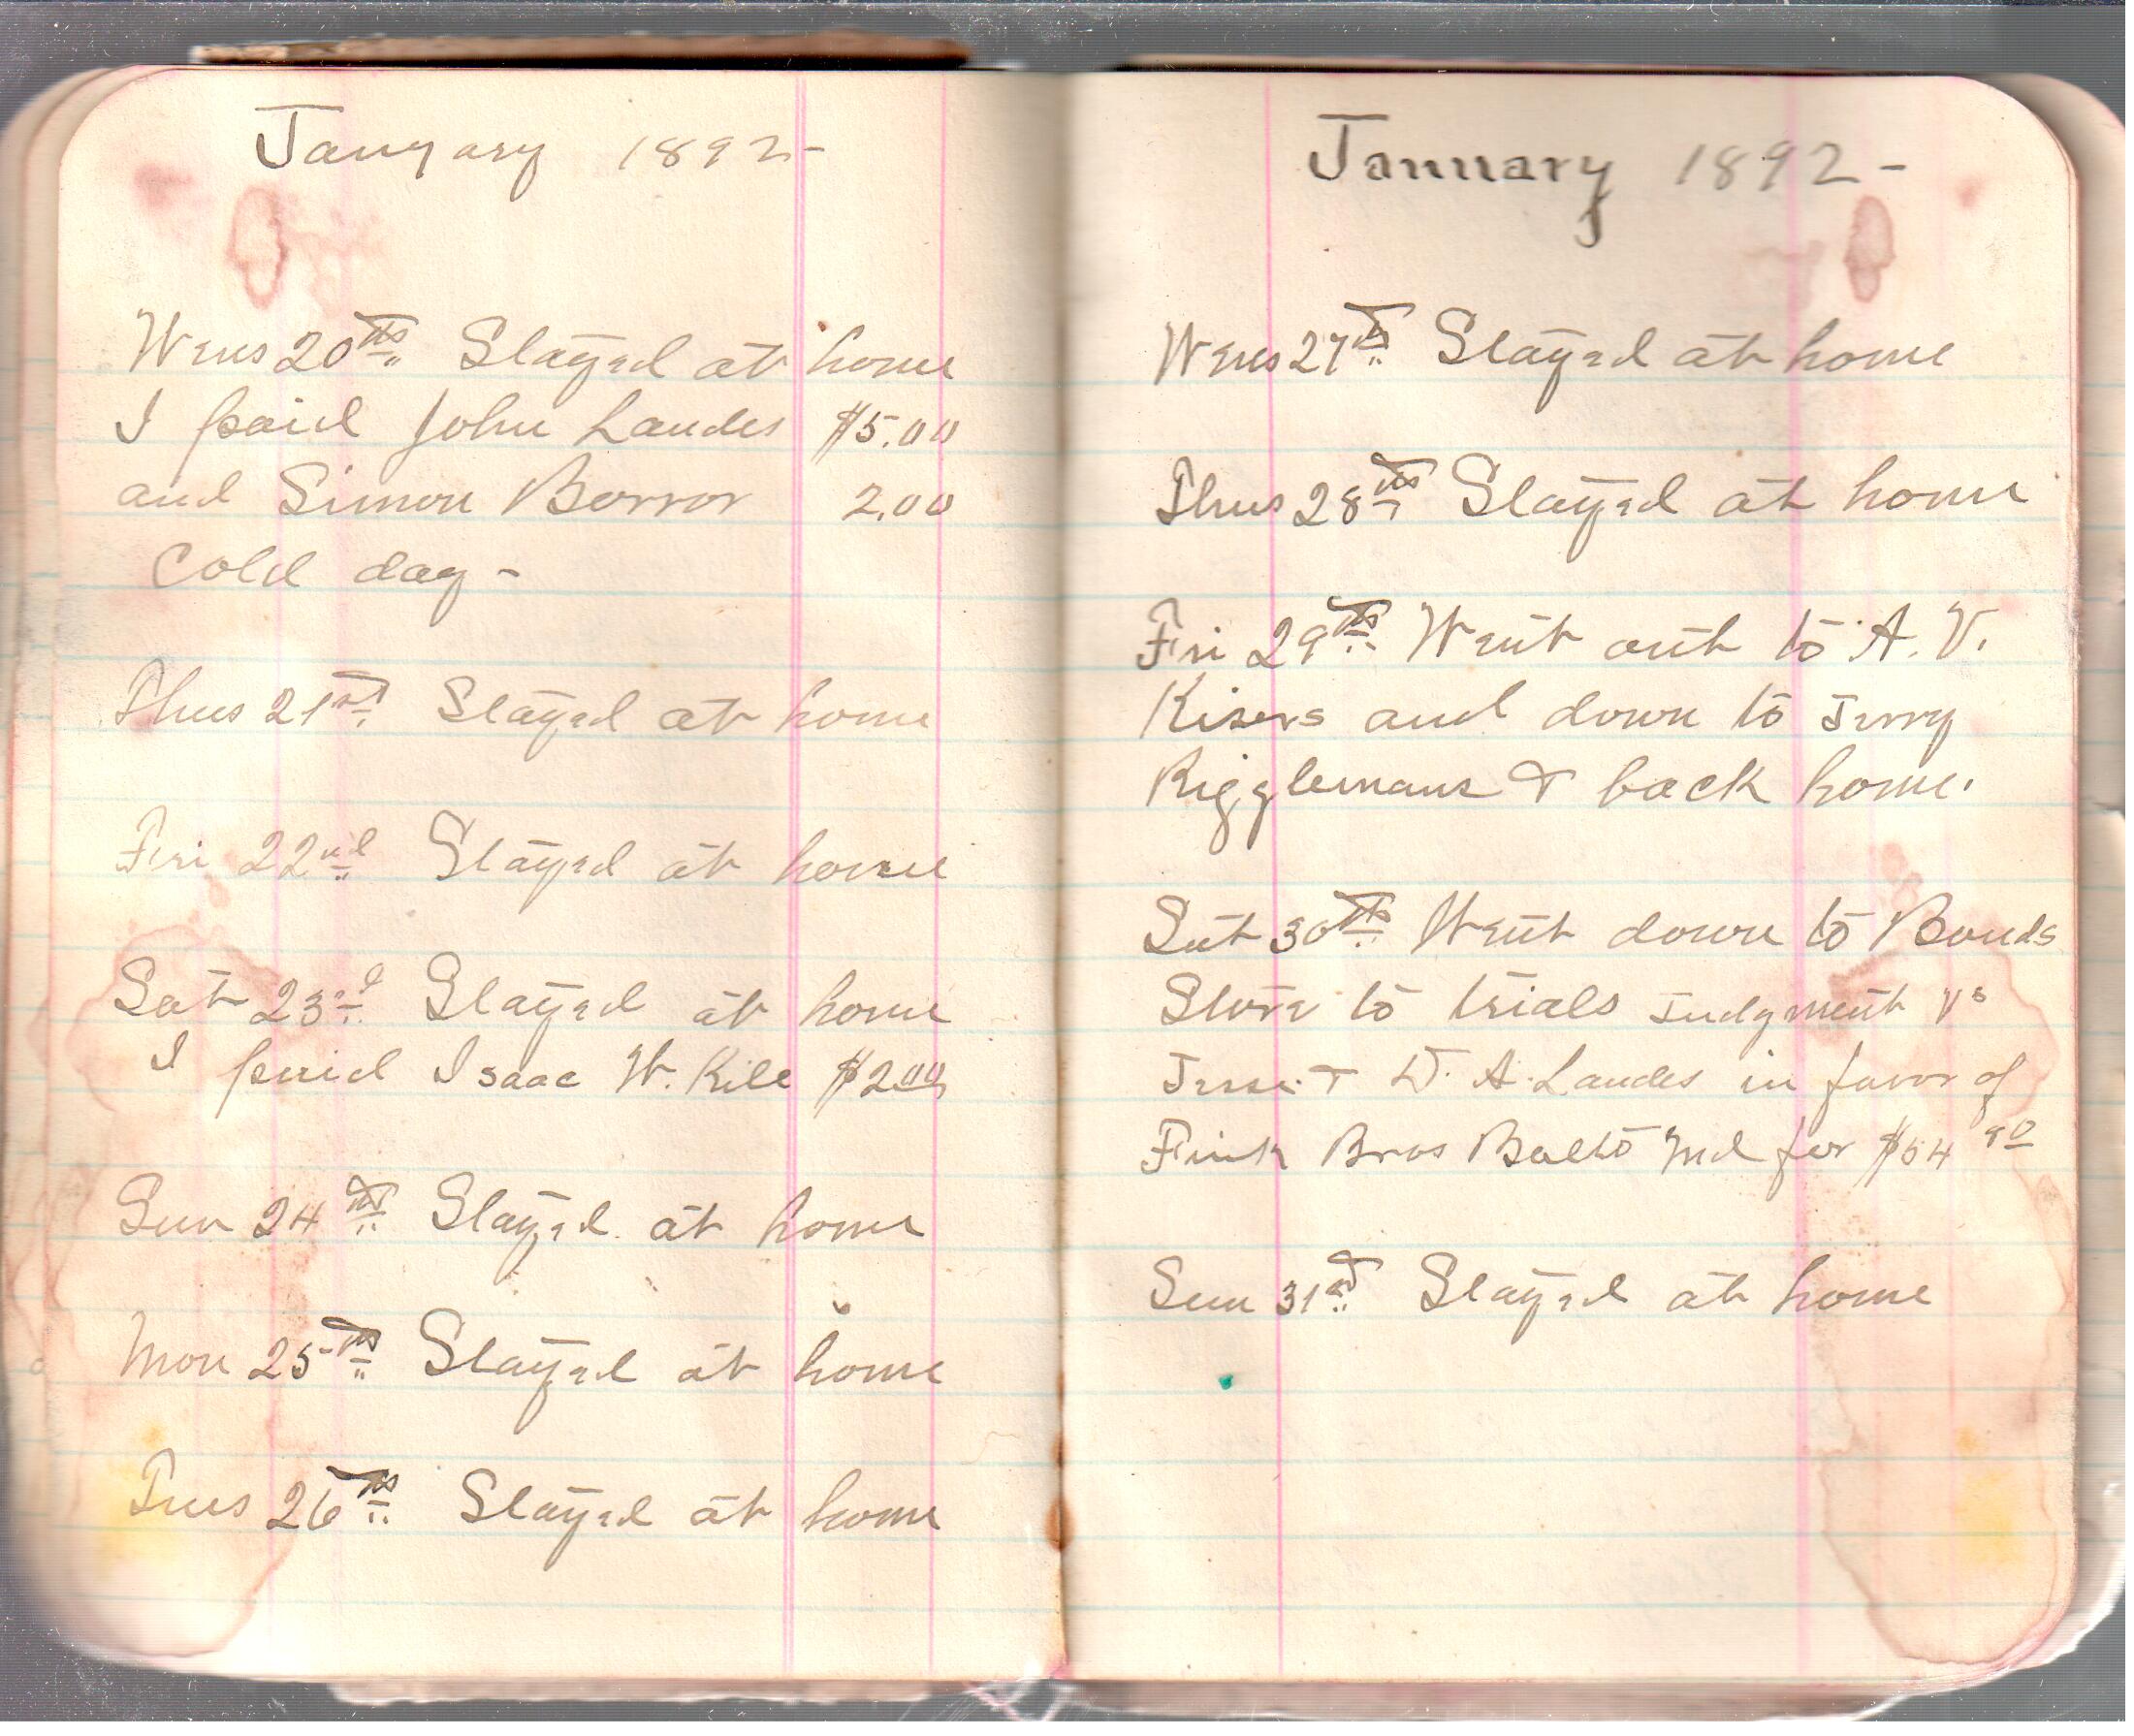 January 1892-
Wens 20th Stayed at home
I paid John Landes $5.00
and Simon Borror 2.00
Cold day -
Thus 21st Stayed at home
Fri 22nd Stayed at home
Sat 23rd Stayed at home
I paid Isaac W. Kile $2.00
Sun 24th Stayed at home
Mon 25th Stayed at home
Tues 26th Stayed at home
January 1892-
Wens 27th Stayed at home
Thus 28th Stayed at home
Fri 29th Went out to A. V.
Kisers and down to Jerry
Rigglemans & back home.
Sat 30th Went down to Bonds
Store to trials Judgment vs
Jesse & D. A. Landes in favor of
Fink Bros Balto Md for
Sun 31st Stayed at home